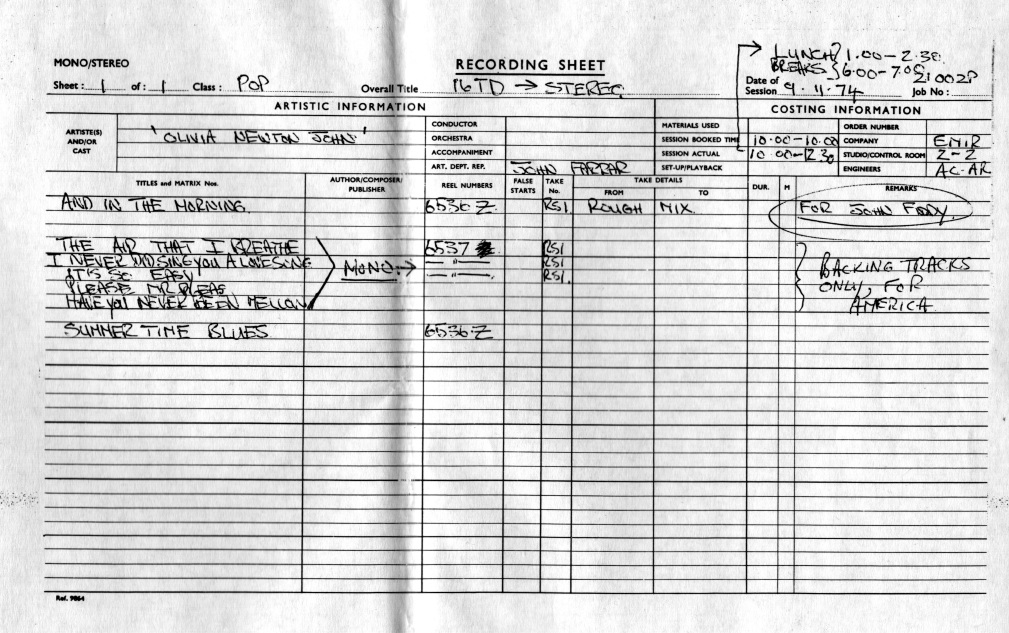 LUNCH } 1.00 - 2.30
BREAKS } 6.00 - 7.00
MONO/STEREO
RECORDING SHEET
Sheet : 1 of : 1 Class : POP Overall Title 16TD → STEREO Date of Session 9. 11. 74 Job No : 21002P
ARTISTIC INFORMATION COSTING INFORMATION
ARTISTE(S) AND/OR CAST 'OLIVIA NEWTON JOHN'
CONDUCTOR MATERIALS USED ORDER NUMBER
ORCHESTRA SESSION BOOKED TIME 10.00-10.00 COMPANY
ACCOMPANIMENT SESSION ACTUAL STUDIO/CONTROL ROOM 2-2
ART. DEPT. REP. JOHN FARRAR SET-UP/PLAYBACK ENGINEERS AC-AR
TITLES and MATRIX Nos. AUTHOR/COMPOSER/ PUBLISHER REEL NUMBERS FALSE STARTS TAKE No. TAKE DETAILS FROM TO DUR. M REMARKS
AND IN THE MORNING. 6536.Z RS1. ROUGH MIX. FOR JOHN
THE AIR THAT I BREATHE 6537 RS1
I NEVER LOVESONG MONO. → — " — RS1
IT'S SO EASY — " — RS1.
PLEASE MR PLEAS
HAVE YOU NEVER BEEN MELLOW
BACKING TRACKS
ONLY, FOR
AMERICA.
SUMMER TIME BLUES 6536.Z
Ref. 9864